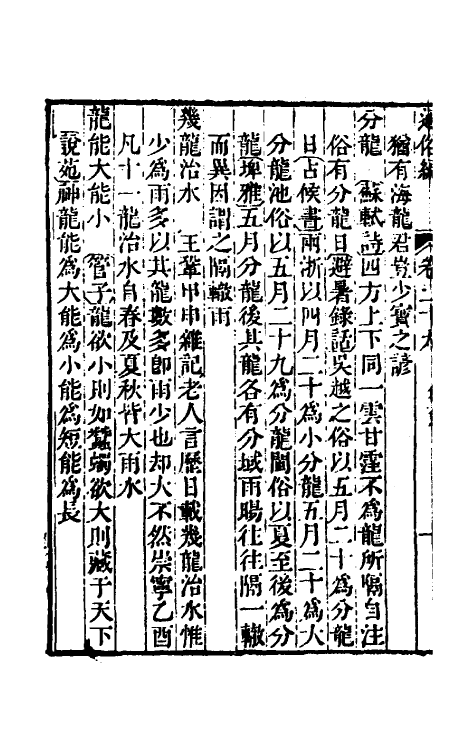 通俗編 卷二十九
猶有海龍君豈少寳之諺
分龍 蘇軾詩四方上下同一雲甘霔不為龍所隔自注
俗有分龍日避暑錄話吳越之俗以五月二十為分龍
日占候書兩浙以四月二十為小分龍五月二十為大
分龍池俗以五月二十九為分龍閩俗以夏至後為分
龍埤雅五月分龍後其龍各有分域雨暘往往隔一轍
而異因謂之隔轍雨
幾龍治水 王鞏甲申雜記老人言歷日載幾龍治水惟
少為雨多以其龍數多即雨少也却大不然崇寧乙酉
凡十一龍治水自春及夏秋皆大雨水
龍能大能小 管子龍欲小則如蠶蠋欲大則藏于天下
說苑神龍能為大能為小能為短能為長